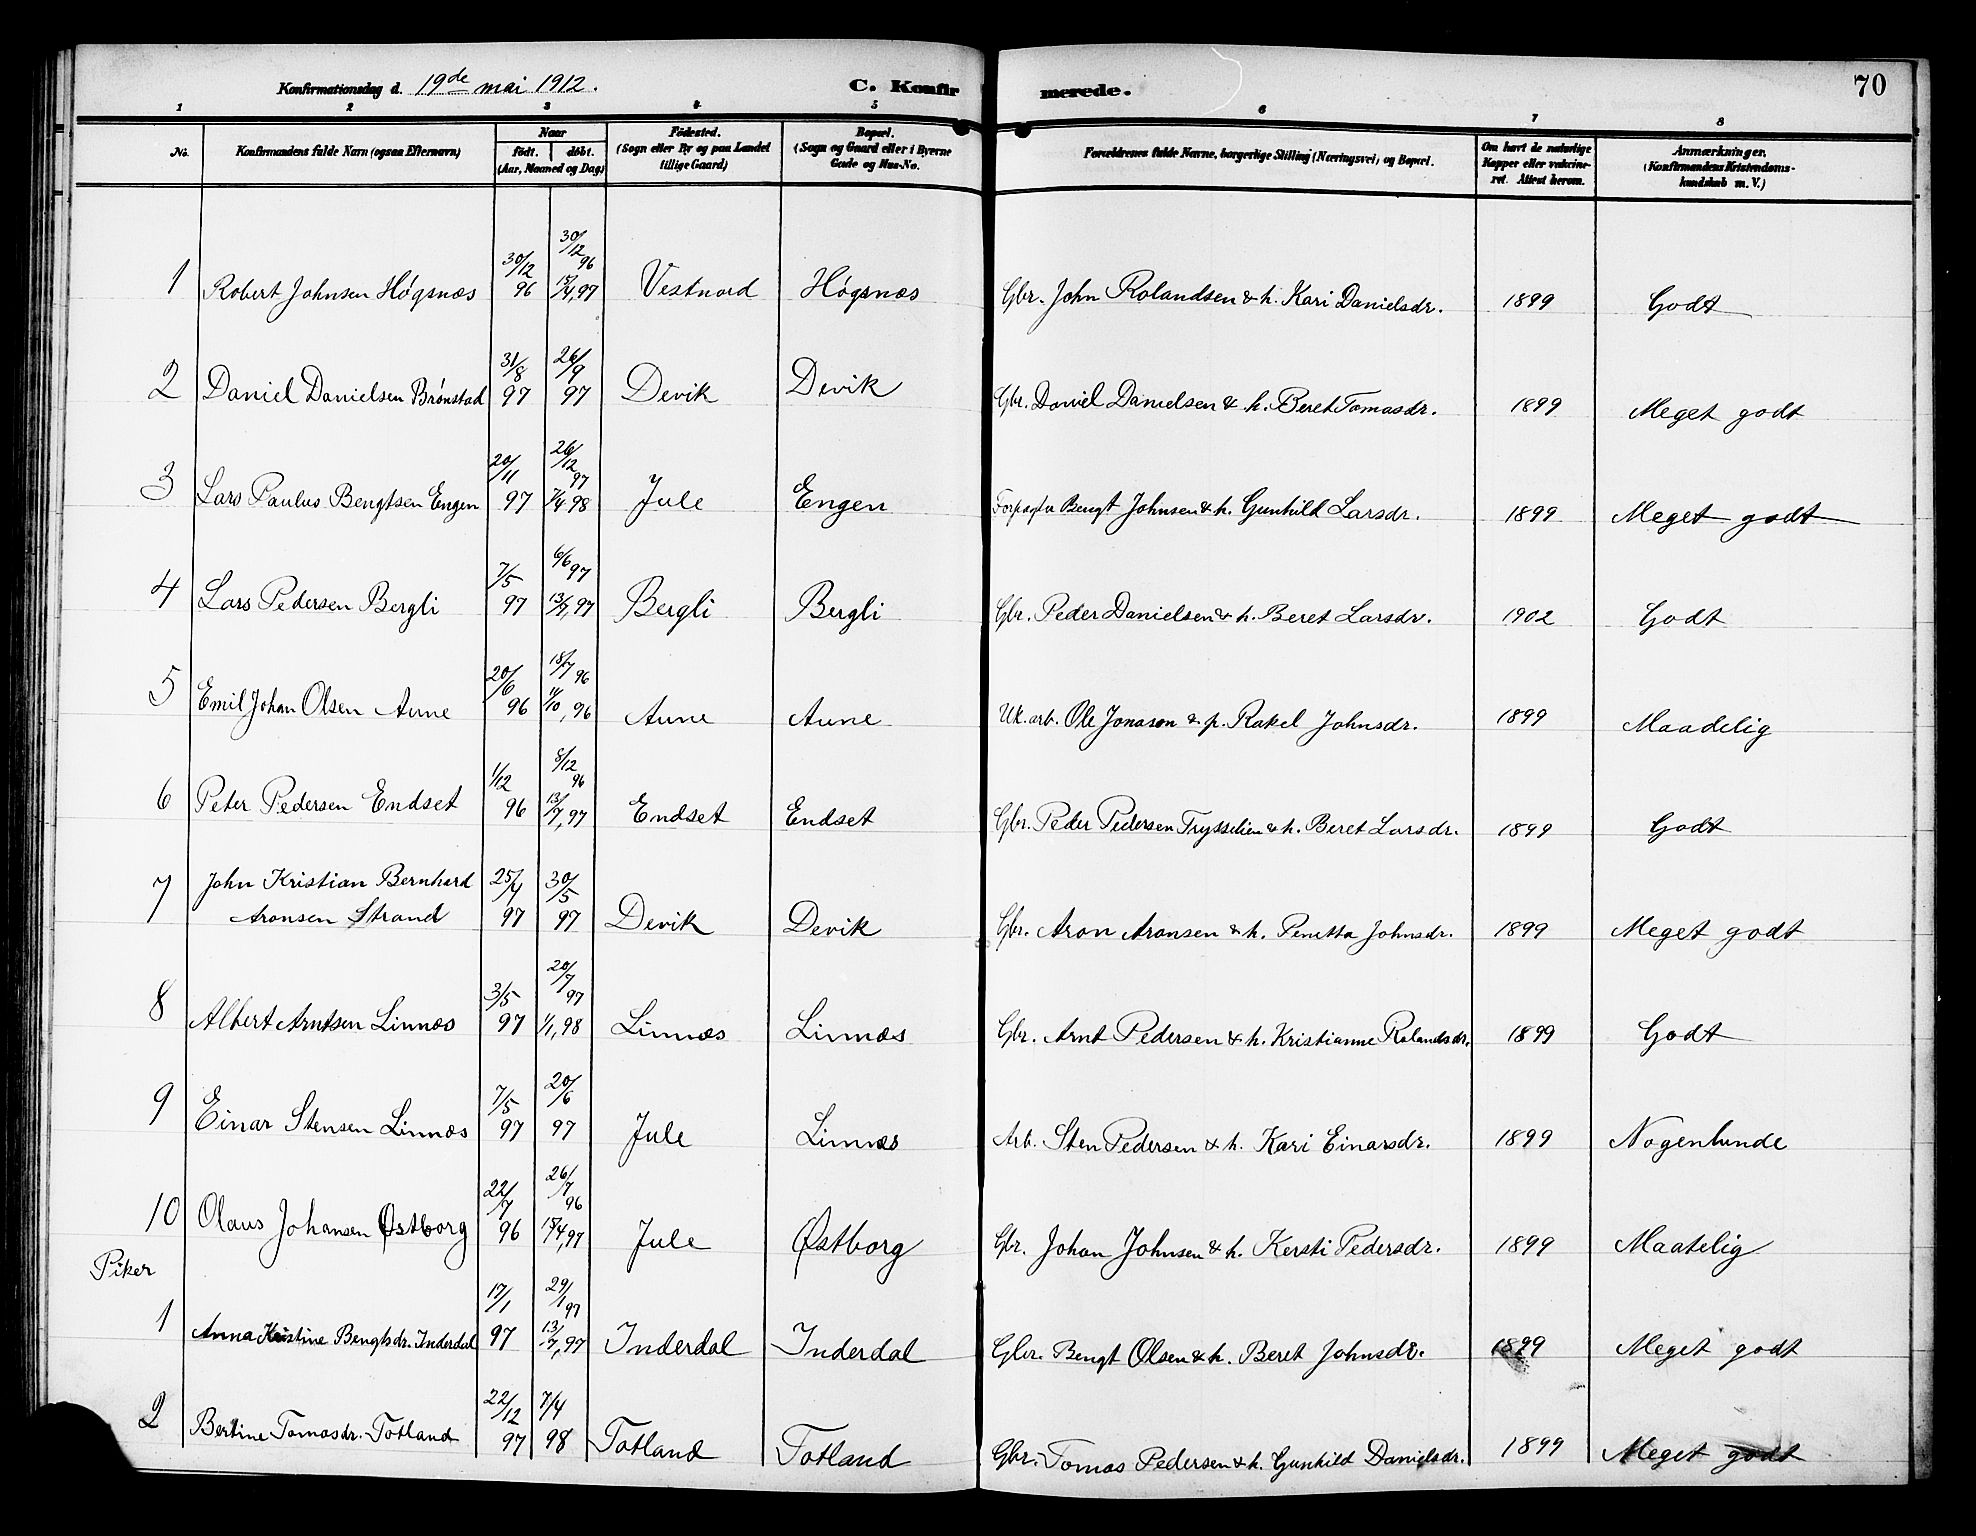 Konfirmationsdag d. 19de mai 1912. C. Konfirmerede. 70
1 2 3 4 5 6 7 8
No. Konfirmandens fulde Navn (ogsaa Efternavn) Naar født. døbt. (Aar, Maaned og Dag) Fødested. (Sogn eller By og paa Landet tillige Gaard) Bopæl. (Sogn og Gaard eller i Byerne Gade og Hus-No. Forældrenes fulde Navne, borgerlige Stilling (Næringsvei) og Bopæl. Om havt de naturlige Kopper eller vakcineret. Attest herom. Anmærkninger. (Konfirmandens Kristendomskundskab m. V.)
1 Robert Johnsen Høgsnæs 30/12 96 30/12 96 /4,97 Vestnord Høgsnæs Gbr. John Rolandsen & h. Kari Danielsdr. 1899 Godt
2 Daniel Danielsen Brønstad 31/8 97 26/9 97 Devik Devik Gbr. Daniel Danielsen & h. Beret Tomasdr. 1899 Meget godt
3 Lars Paulus Bengtsen Engen 20/11 97 26/12 97 7/4 98 Jule Engen Bengt Johnsen & h. Gunhild Larsdr. 1899 Meget godt
4 Lars Pedersen Bergli 7/5 97 6/6 97 13/7,97 Bergli Bergli Gbr. Peder Danielsen & h. Beret Larsdr. 1902 Godt
5 Emil Johan Olsen Aune 20/6 96 18/7 96 11/10,96 Aune Aune Uk. arb. Ole Jonason & p. Rakel Johnsdr. 1899 Maadelig
6 Peter Pedersen Endset 1/12 96 8/12 96 13/7,97 Endset Endset Gbr. Peder Pedersen Trysselien & h. Beret Larsdr. 1899 Godt
7 John Kristian Bernhard
Aronsen Strand 25/4 97 30/5 97 Devik Devik Gbr. Aron Aronsen & h. Penetta Johnsdr. 1899 Meget godt
8 Albert Arntsen Linnæs 3/5 97 20/7 97 1/1,98 Linnæs Linnæs Gbr. Arnt Pedersen & h. Kristianne Rolandsdr. 1899 Godt
9 Einar Stensen Linnæs 7/5 97 20/6 97 Jule Linnæs Arb. Sten Pedersen & h. Kari Einarsdr. 1899 Nogenlunde
10 Olaus Johansen Østborg 22/7 96 26/7 96 /4,97 Jule Østborg Gbr. Johan Johnsen & h. Kersti Pedersdr. 1899 Maatelig
Piker
1 Anna Kristine Bengtsdr. Inderdal 17/1 97 29/1 97 13/7,97 Inderdal Inderdal Gbr. Bengt Olsen & h. Beret Johnsdr. 1899 Meget godt
2 Bertine Tomasdr. Totland 22/12 97 7/4 98 Totland Totland Gbr. Tomas Pedersen & h. Gunhild Danielsdr. 1899 Meget godt